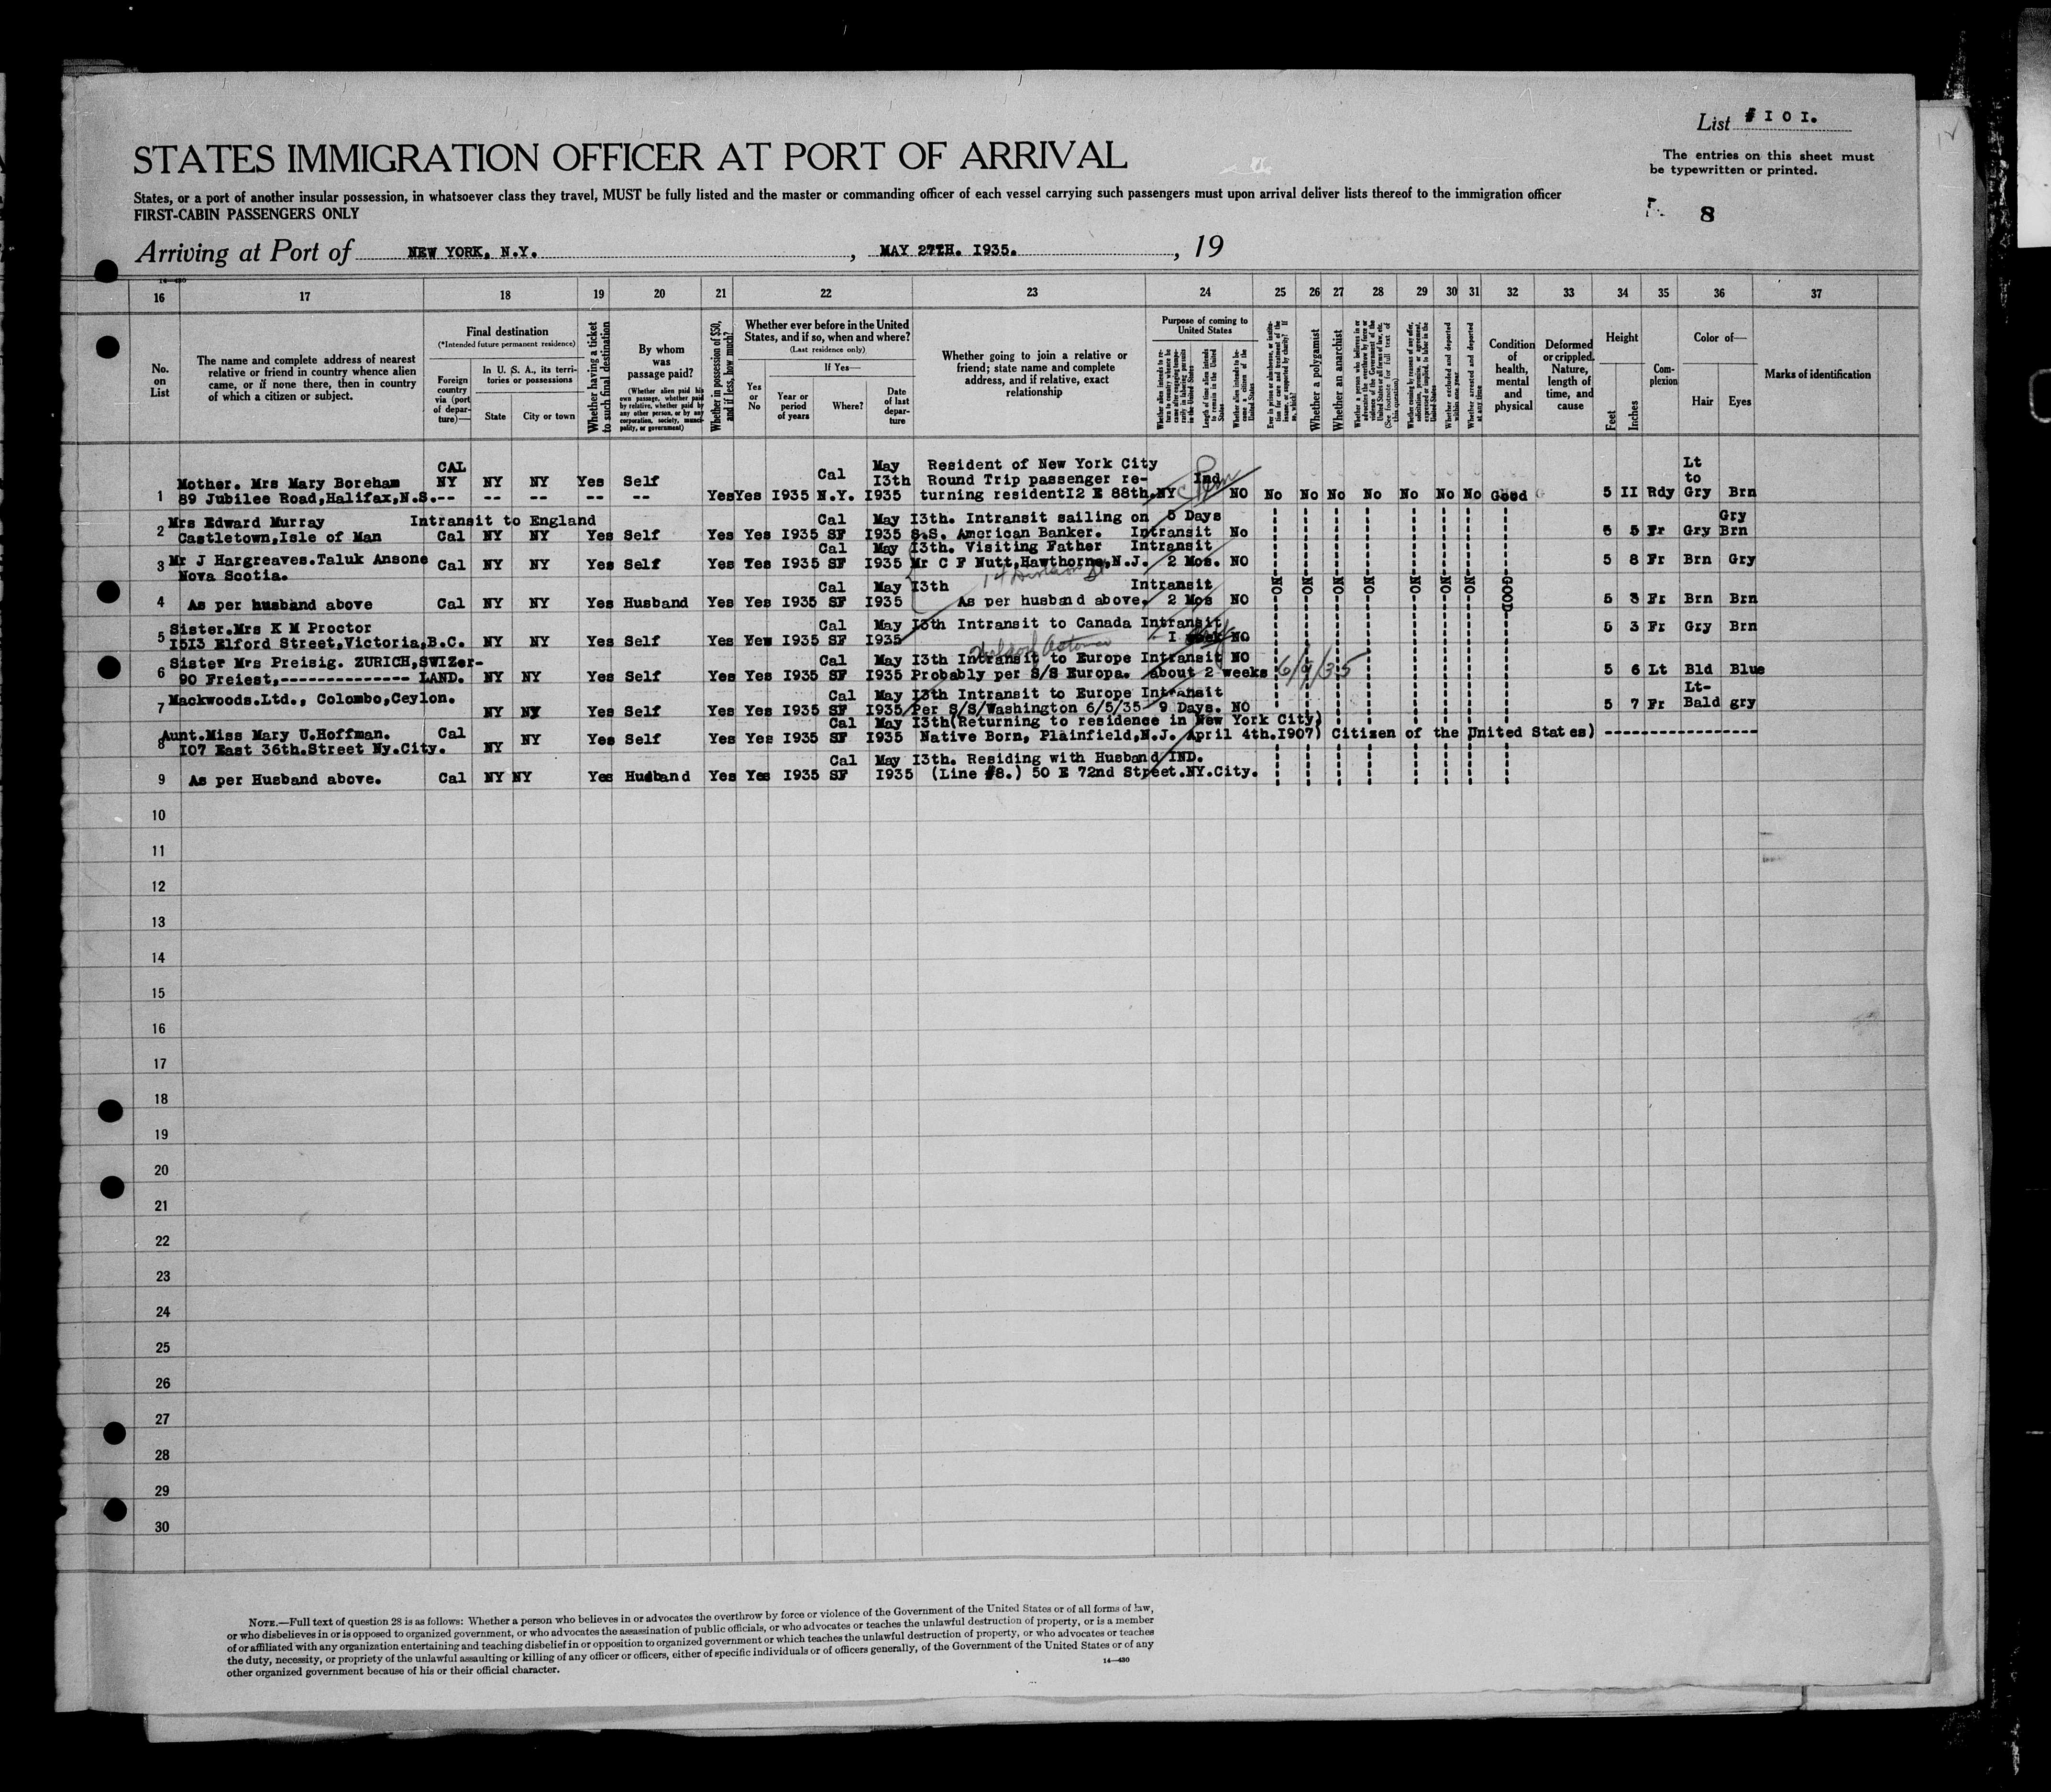 List # I 0 I.
The entries on this sheet must
be typewritten or printed.
8
STATES IMMIGRATION OFFICER AT PORT OF ARRIVAL
States, or a port of another insular possession, in whatsoever class they travel, MUST be fully listed and the master or commanding officer of each vessel carrying such passengers must upon arrival deliver lists thereof to the immigration officer
FIRST-CABIN PASSENGERS ONLY
Arriving at Port of NEW YORK, N.Y. , MAY 27TH. I935. , 19
14—430
16 17 18 19 20 21 22 23 24 25 26 27 28 29 30 31 32 33 34 35 36 37
No. on List
The name and complete address of nearest
relative or friend in country whence alien
came, or if none there, then in country
of which a citizen or subject.
Final destination
(*Intended future permanent residence)
Foreign country via (port of departure)—
In U. S. A., its territories or possessions
State
City or town
Whether having a ticket to such final destination
By whom was passage paid?
(Whether alien paid his own passage, whether paid by relative, whether paid by any other person, or by any corporation, society, municipality, or government)
Whether in possession of $50, and if less, how much?
Whether ever before in the United States, and if so, when and where?
(Last residence only)
Yes or No
If Yes—
Year or period of years
Where?
Date of last departure
Whether going to join a relative or
friend; state name and complete
address, and if relative, exact
relationship
Purpose of coming to United States
Length of time alien intends to remain in the United States
Whether alien intends to become a citizen of the United States
Whether a polygamist
Whether an anarchist
Whether excluded and deported within one year
Whether arrested and deported at any time
Condition of health, mental and physical
Deformed or crippled. Nature, length of time, and cause
Height
Feet
Inches
Complexion
Color of—
Hair
Eyes
Marks of identification
CAL May Resident of New York City Lt
Mother. Mrs Mary Boreham NY NY NY Yes Self Cal I3th Round Trip passenger re- Ind to
1 89 Jubilee Road,Halifax,N.S.-- -- -- -- -- Yes Yes I935 N.Y. I935 turning resident I2 E 88th.NY NO No No No No No No No Good 5 II Rdy Gry Brn
Mrs Edward Murray Intransit to England Cal May I3th. Intransit sailing on 5 Days Gry
2 Castletown,Isle of Man Cal NY NY Yes Self Yes Yes I935 SF I935 S.S. American Banker. Intransit No 5 5 Fr Gry Brn
Cal May I3th. Visiting Father Intransit
3 Mr J Hargreaves.Taluk Ansone Cal NY NY Yes Self Yes Yes I935 SF I935 Mr C F Nutt,Hawthorne,N.J. 2 Mos. NO 5 8 Fr Brn Gry
Nova Scotia.
Cal May I3th Intransit NO NO NO NO NO NO NO GOOD
4 As per husband above Cal NY NY Yes Husband Yes Yes I935 SF I935 As per husband above. 2 Mos NO 5 3 Fr Brn Brn
Sister.Mrs K M Proctor Cal May I3th Intransit to Canada Intransit
5 I5I3 Elford Street,Victoria,B.C. NY NY Yes Self Yes Yes I935 SF I935 I week NO 5 3 Fr Gry Brn
Sister Mrs Preisig. ZURICH,SWIZer- Cal May I3th Intransit to Europe Intransit NO
6 90 Freiest,-------------- LAND. NY NY Yes Self Yes Yes I935 SF I935 Probably per S/S Europa. about 2 weeks 6/9/35 5 6 Lt Bld Blue
Mackwoods.Ltd., Colombo,Ceylon. Cal May I3th Intransit to Europe Intransit Lt-
7 NY NY Yes Self Yes Yes I935 SF I935 Per S/S/Washington 6/5/35 9 Days. NO 5 7 Fr Bald gry
Cal May I3th(Returning to residence in New York City)
Aunt.Miss Mary U.Hoffman. Cal NY Yes Self Yes Yes I935 SF I935 Native Born, Plainfield,N.J. April 4th.I907) Citizen of the United States) -----------------
8 I07 East 36th.Street Ny.City. NY
Cal May I3th. Residing with Husband IND.
9 As per Husband above. Cal NY NY Yes Husband Yes Yes I935 SF I935 (Line #8.) 50 E 72nd Street.NY.City.
10
11
12
13
14
15
16
17
18
19
20
21
22
23
24
25
26
27
28
29
30
NOTE.—Full text of question 28 is as follows: Whether a person who believes in or advocates the overthrow by force or violence of the Government of the United States or of all forms of law,
or who disbelieves in or is opposed to organized government, or who advocates the assassination of public officials, or who advocates or teaches the unlawful destruction of property, or is a member
of or affiliated with any organization entertaining and teaching disbelief in or opposition to organized government or which teaches the unlawful destruction of property, or who advocates or teaches
the duty, necessity, or propriety of the unlawful assaulting or killing of any officer or officers, either of specific individuals or of officers generally, of the Government of the United States or of any
other organized government because of his or their official character.
14—430